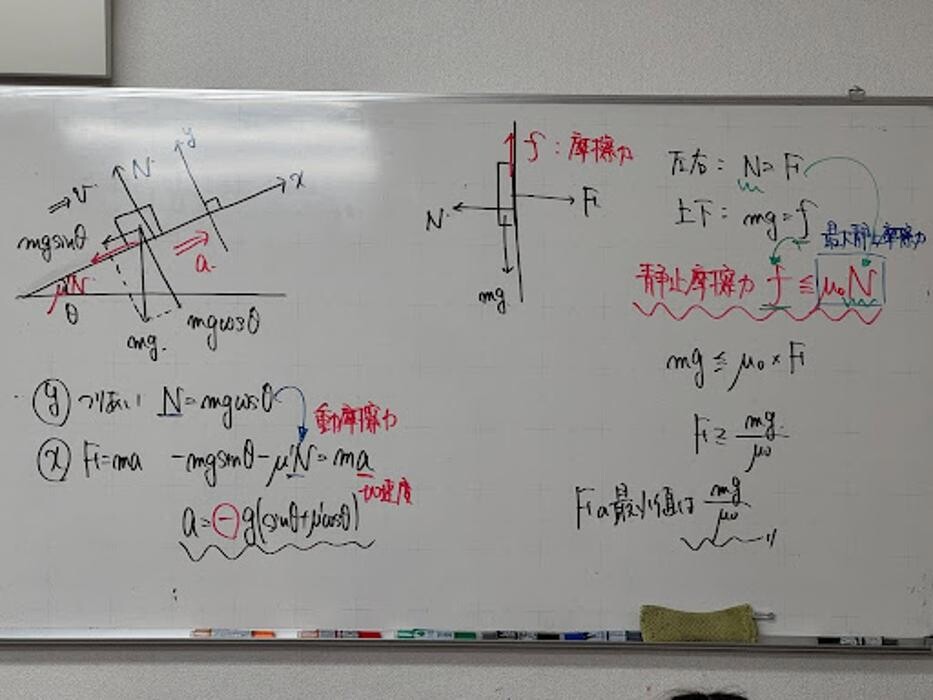 y
N
x
⇒v
mgsinθ
a
μ'N
θ
mgcosθ
mg
ⓨ つりあい N=mgcosθ
動摩擦力
ⓧ F=ma -mgsinθ-μ'N=ma
加速度
a=-g(sinθ+μ'cosθ)
f:摩擦力
N
F
mg
左右: N=F
上下: mg=f
最大静止摩擦力
静止摩擦力 f≦μ₀N
mg≦μ₀×F
F≧mg/μ₀
Fの最小値は mg/μ₀